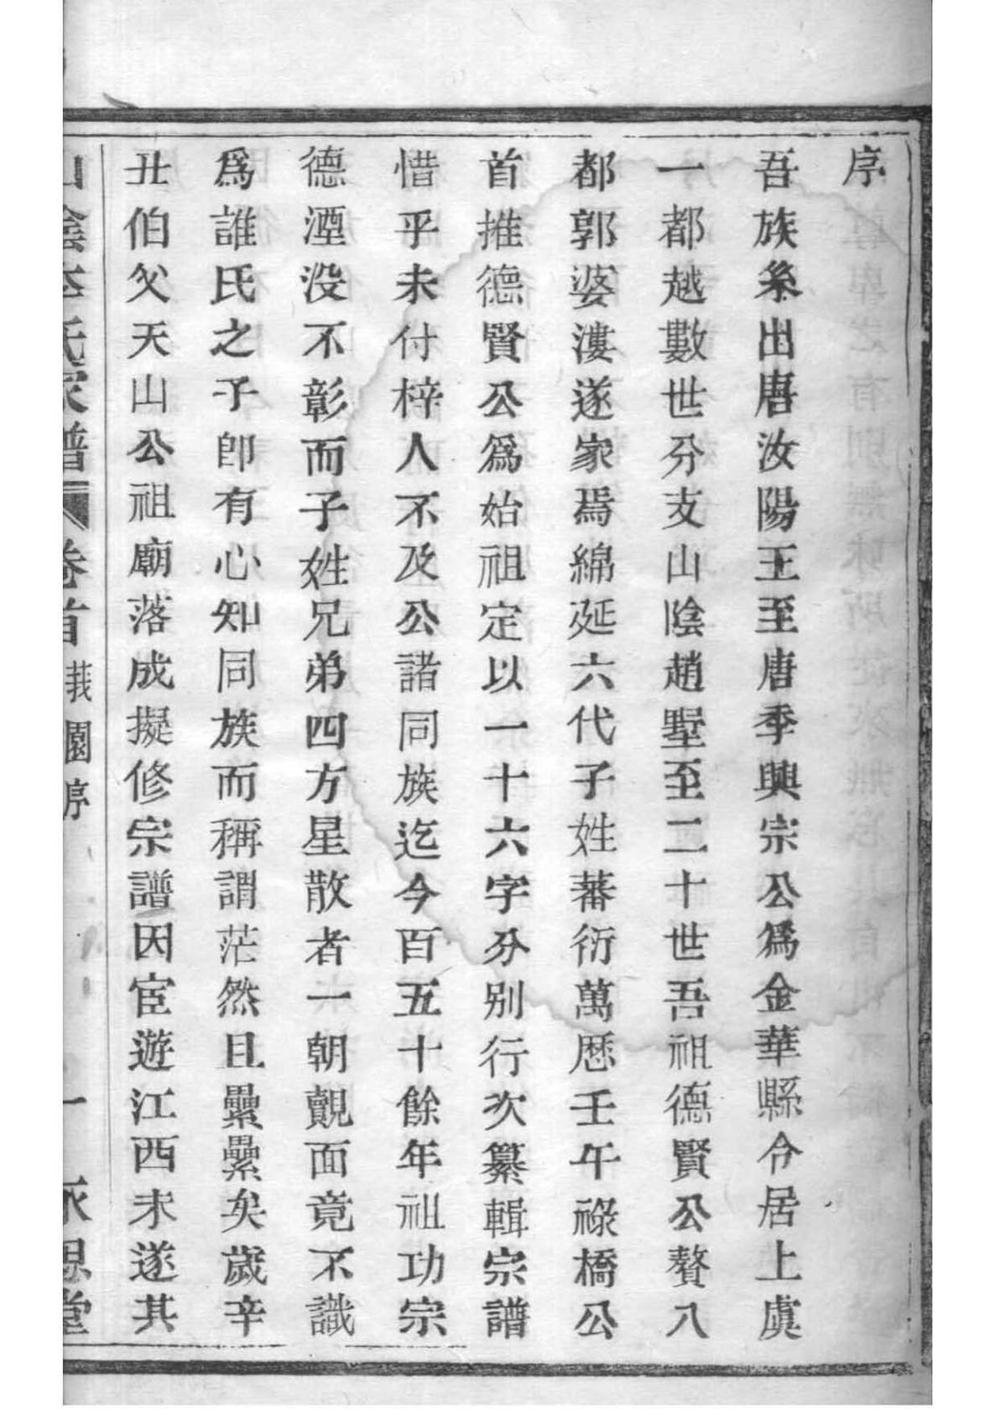 序
吾族系出唐汝陽王至唐季興宗公爲金華縣令居上虞
一都越數世分支山陰趙墅至二十世吾祖德賢公贅八
都郭婆漊遂家焉綿延六代子姓蕃衍萬歷壬午祿橋公
首推德賢公爲始祖定以一十六字分別行次纂輯宗譜
惜乎未付梓人不及公諸同族迄今百五十餘年祖功宗
德湮没不彰而子姓兄弟四方星散者一朝覿面竟不識
爲誰氏之子卽有心知同族而稱謂茫然且纍纍矣歲辛
丑伯父天山公祖廟落成擬修宗譜因宦遊江西未遂其
山陰李氏家譜 卷首 莪園序 一 永思堂